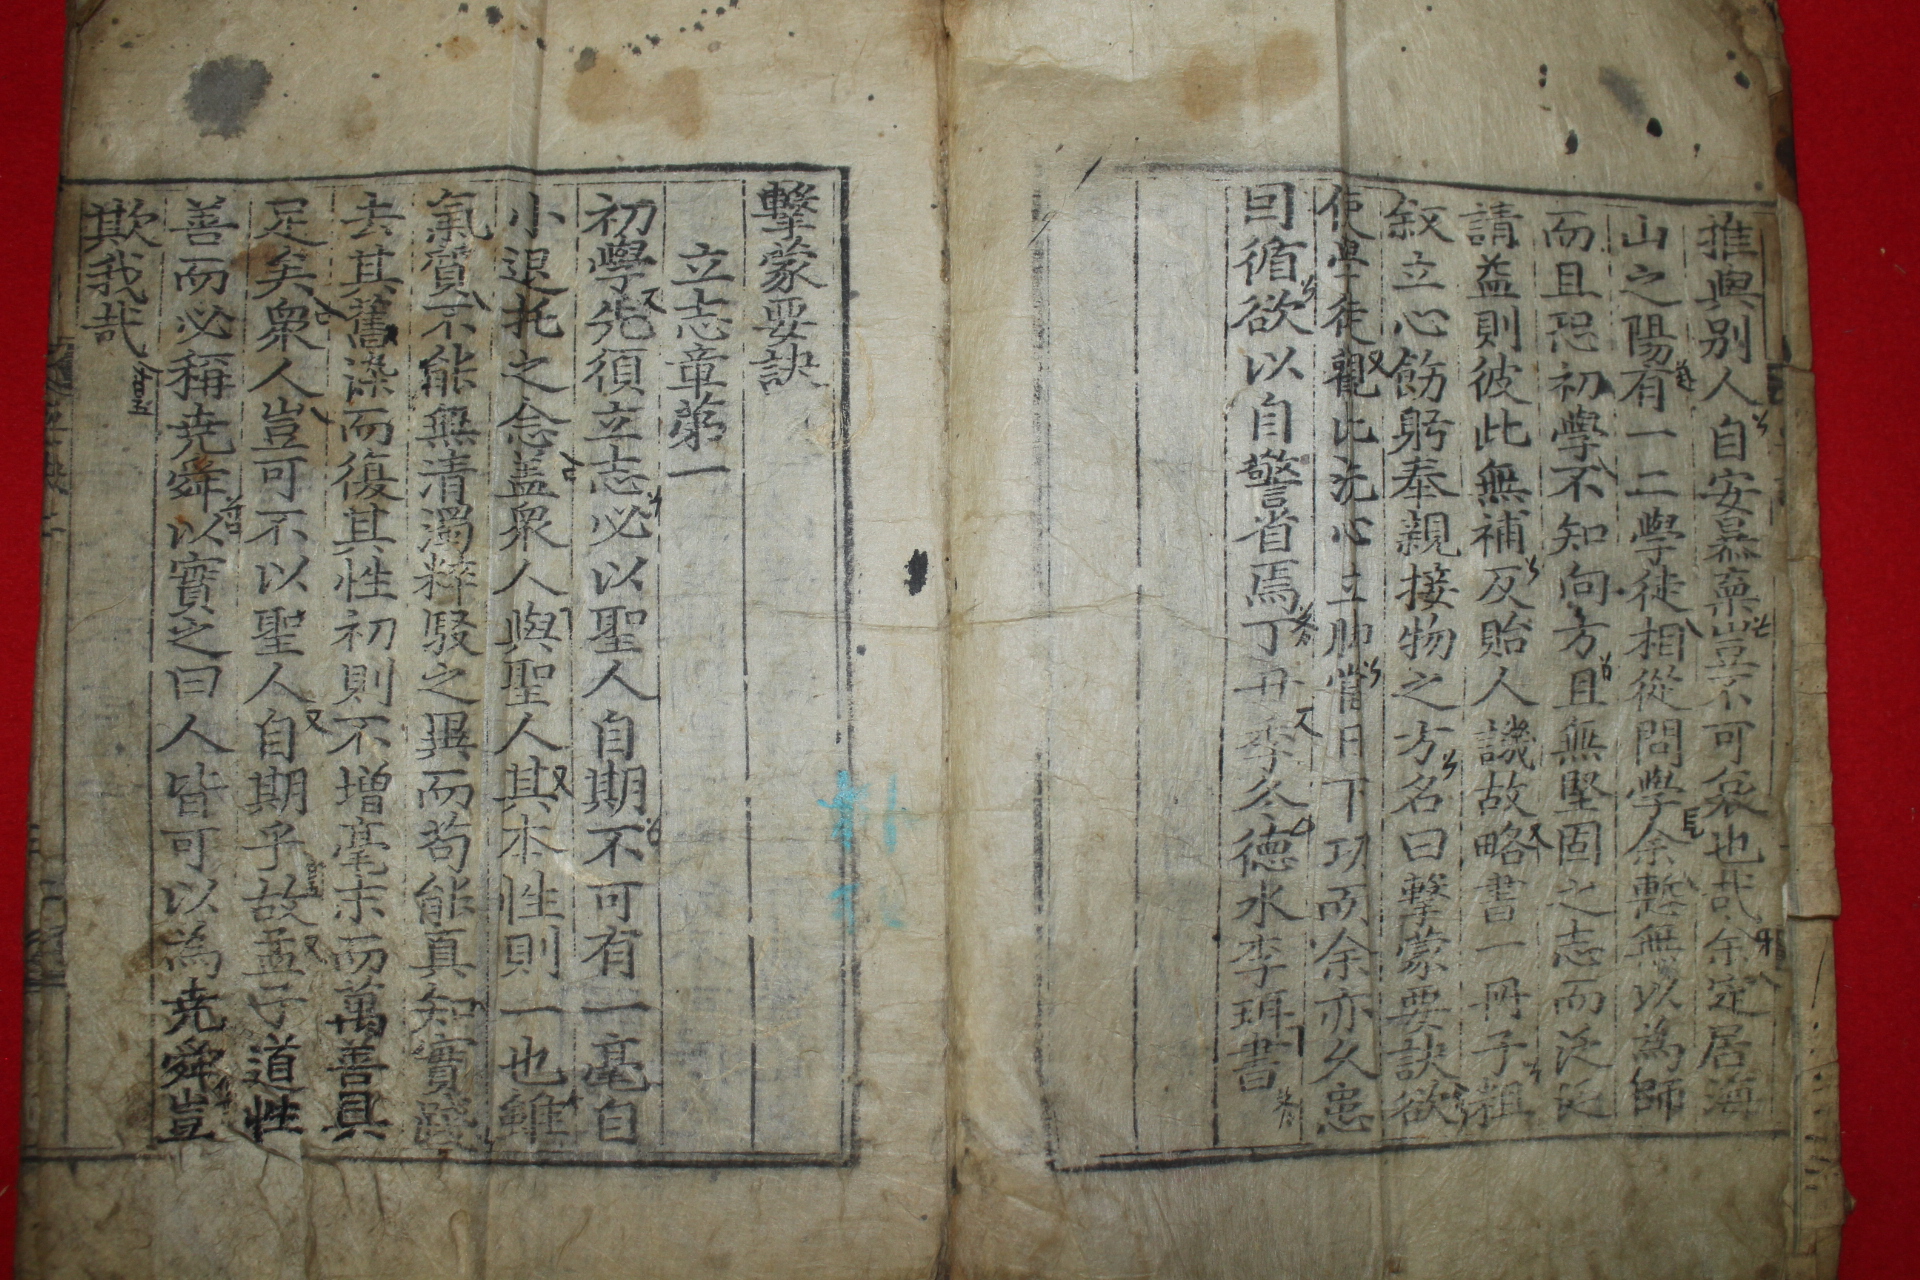 推與別人自安暴棄豈不可哀也哉余定居海
山之陽有一二學徒相從問學余慙無以爲師
而且恐初學不知向方且無堅固之志而泛泛
請益則彼此無補反貽人譏故略書一冊子粗
敍立心飭躬奉親接物之方名曰擊蒙要訣欲
使學徒觀此洗心立脚當日下功而余亦久患
因循欲以自警省焉丁丑季冬德水李珥書
擊蒙要訣
立志章第一
初學先須立志必以聖人自期不可有一毫自
小退托之念盖衆人與聖人其本性則一也雖
氣質不能無淸濁粹駁之異而苟能眞知實踐
去其舊染而復其性初則不增毫末而萬善具
足矣衆人豈可不以聖人自期乎故孟子道性
善而必稱堯舜以實之曰人皆可以爲堯舜豈
欺我哉